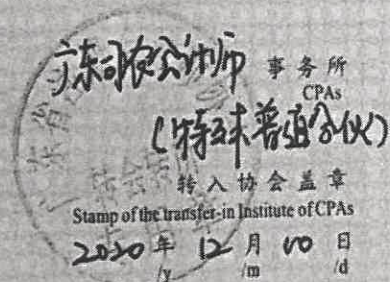 广东司农会计师 事务所
CPAs
(特殊普通合伙)
转入协会盖章
Stamp of the transfer-in Institute of CPAs
2020 年 12 月 10 日
/y /m /d